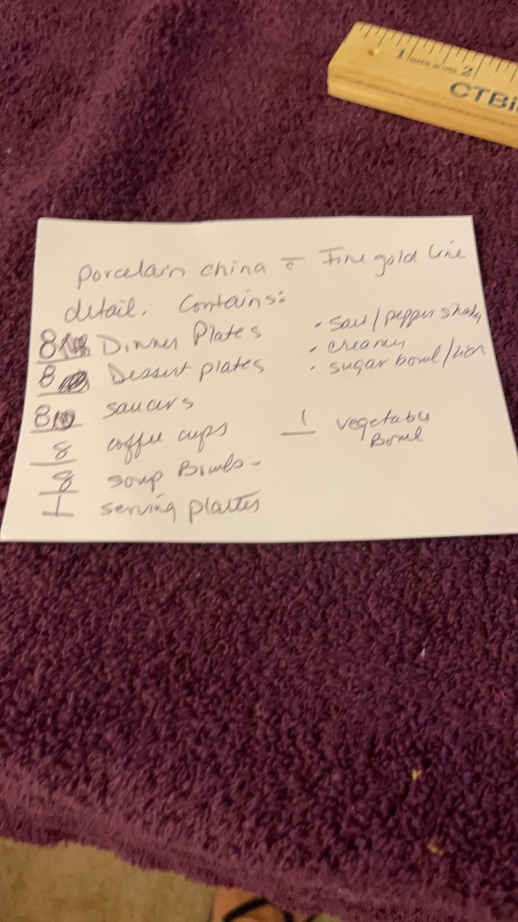 1 2
CTBi
porcelain china c̄ Fine gold line
detail. Contains:
8 Dinner Plates
8 Dessert plates
8 saucers
8 coffee cups
8 soup Bowls
1 serving platter
• salt/pepper
• creamer
• sugar bowl/
1 vegetable
Bowl